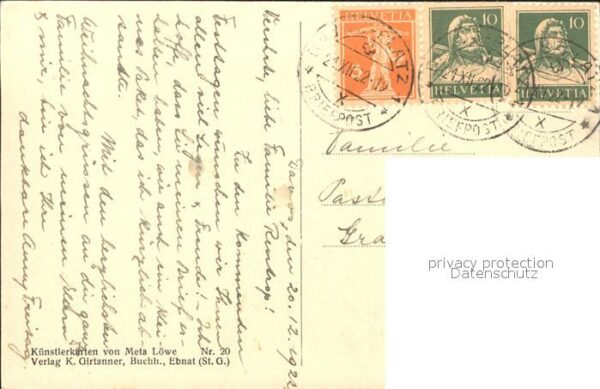 HELVETIA
10
10
HELVETIA
HELVETIA
PLATZ
BRIEFPOST
X
X
X
Davos, den 20.12.1922
Verehrte, liebe Familie
Zu den kommenden
Festtagen wünschen wir Ihnen
allen viel Segen & Freude! - Ich
hoffe, dass Sie meinen Brief er-
halten haben, wie auch ein klei-
nes Paket, das ich kürzlich ab-
sandte.
Mit den herzlichsten
Weihnachtsgrüssen an die ganze
Familie von meinen Eltern
& mir, bin ich Ihre
dankbare Anny
Familie
Künstlerkarten von Meta Löwe Nr. 20
Verlag K. Girtanner, Buchh., Ebnat (St. G.)
privacy protection
Datenschutz